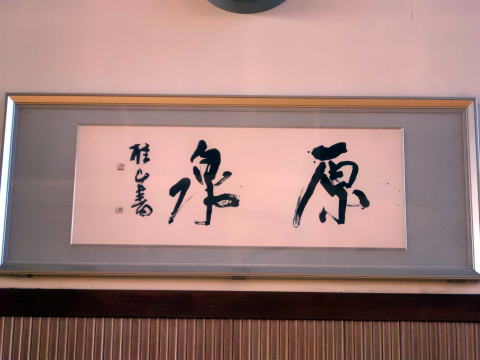 原泉
桂山書